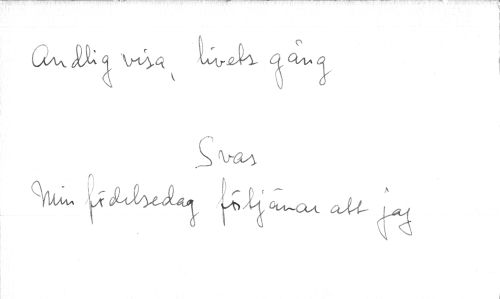 Andlig visa, livets gång
Svas
Min födelsedag förtjänar att jag